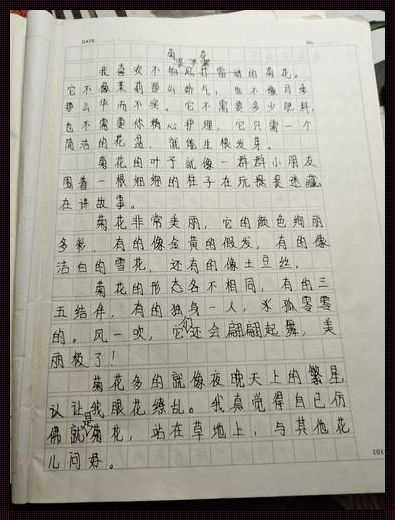 DATE
NO.
菊花
我喜欢不怕风吹雷动的菊花。
它不像茉莉那么娇气，也不像月季
那么华而不实。它不需要多少肥料，
也不需要你精心护理，它只需一个
简洁的花盆，就能生根发芽。
菊花的叶子就像一群群小朋友
围着一根细细的柱子在玩捉迷藏
在讲故事。
菊花非常美丽，它的颜色绚丽
多彩，有的像金黄的假发，有的像
洁白的雪花，还有的像土豆丝。
菊花的形态各不相同，有的三
五结伴，有的独身一人，孤零零
的。风一吹，它们还会翩翩起舞，美
丽极了！
菊花多的就像夜晚天上的繁星
认让我眼花缭乱。我真觉得自己仿
佛就是菊花，站在草地上，与其他花
儿问好。